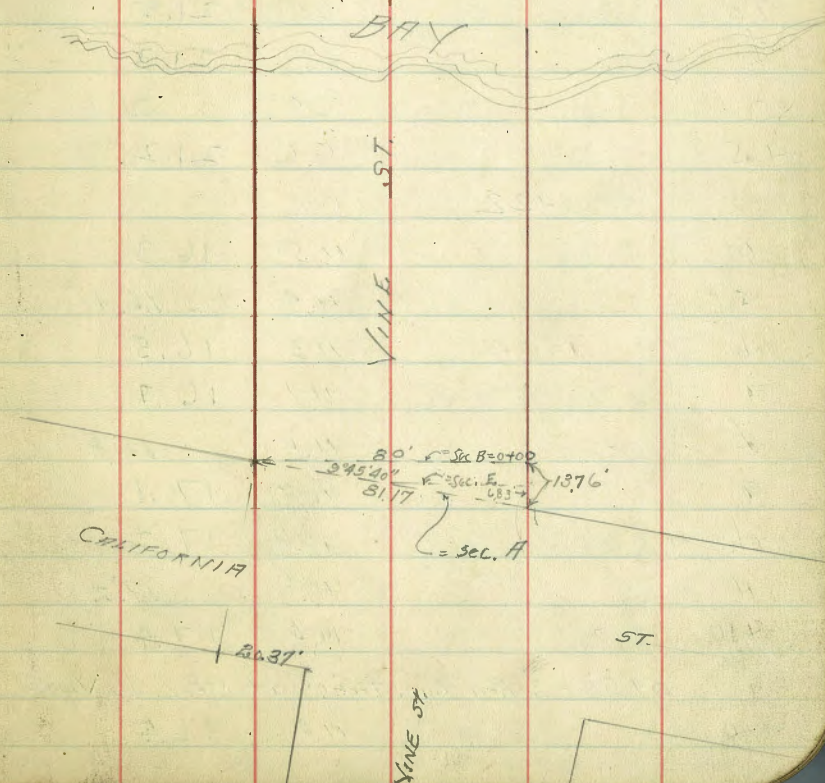 BAY
VINE ST.
80' = Sec B=0+00
9°45'40" = Sec. E
81.17 6.83
13.76'
= Sec. A
CALIFORNIA ST.
20.37'
VINE ST.